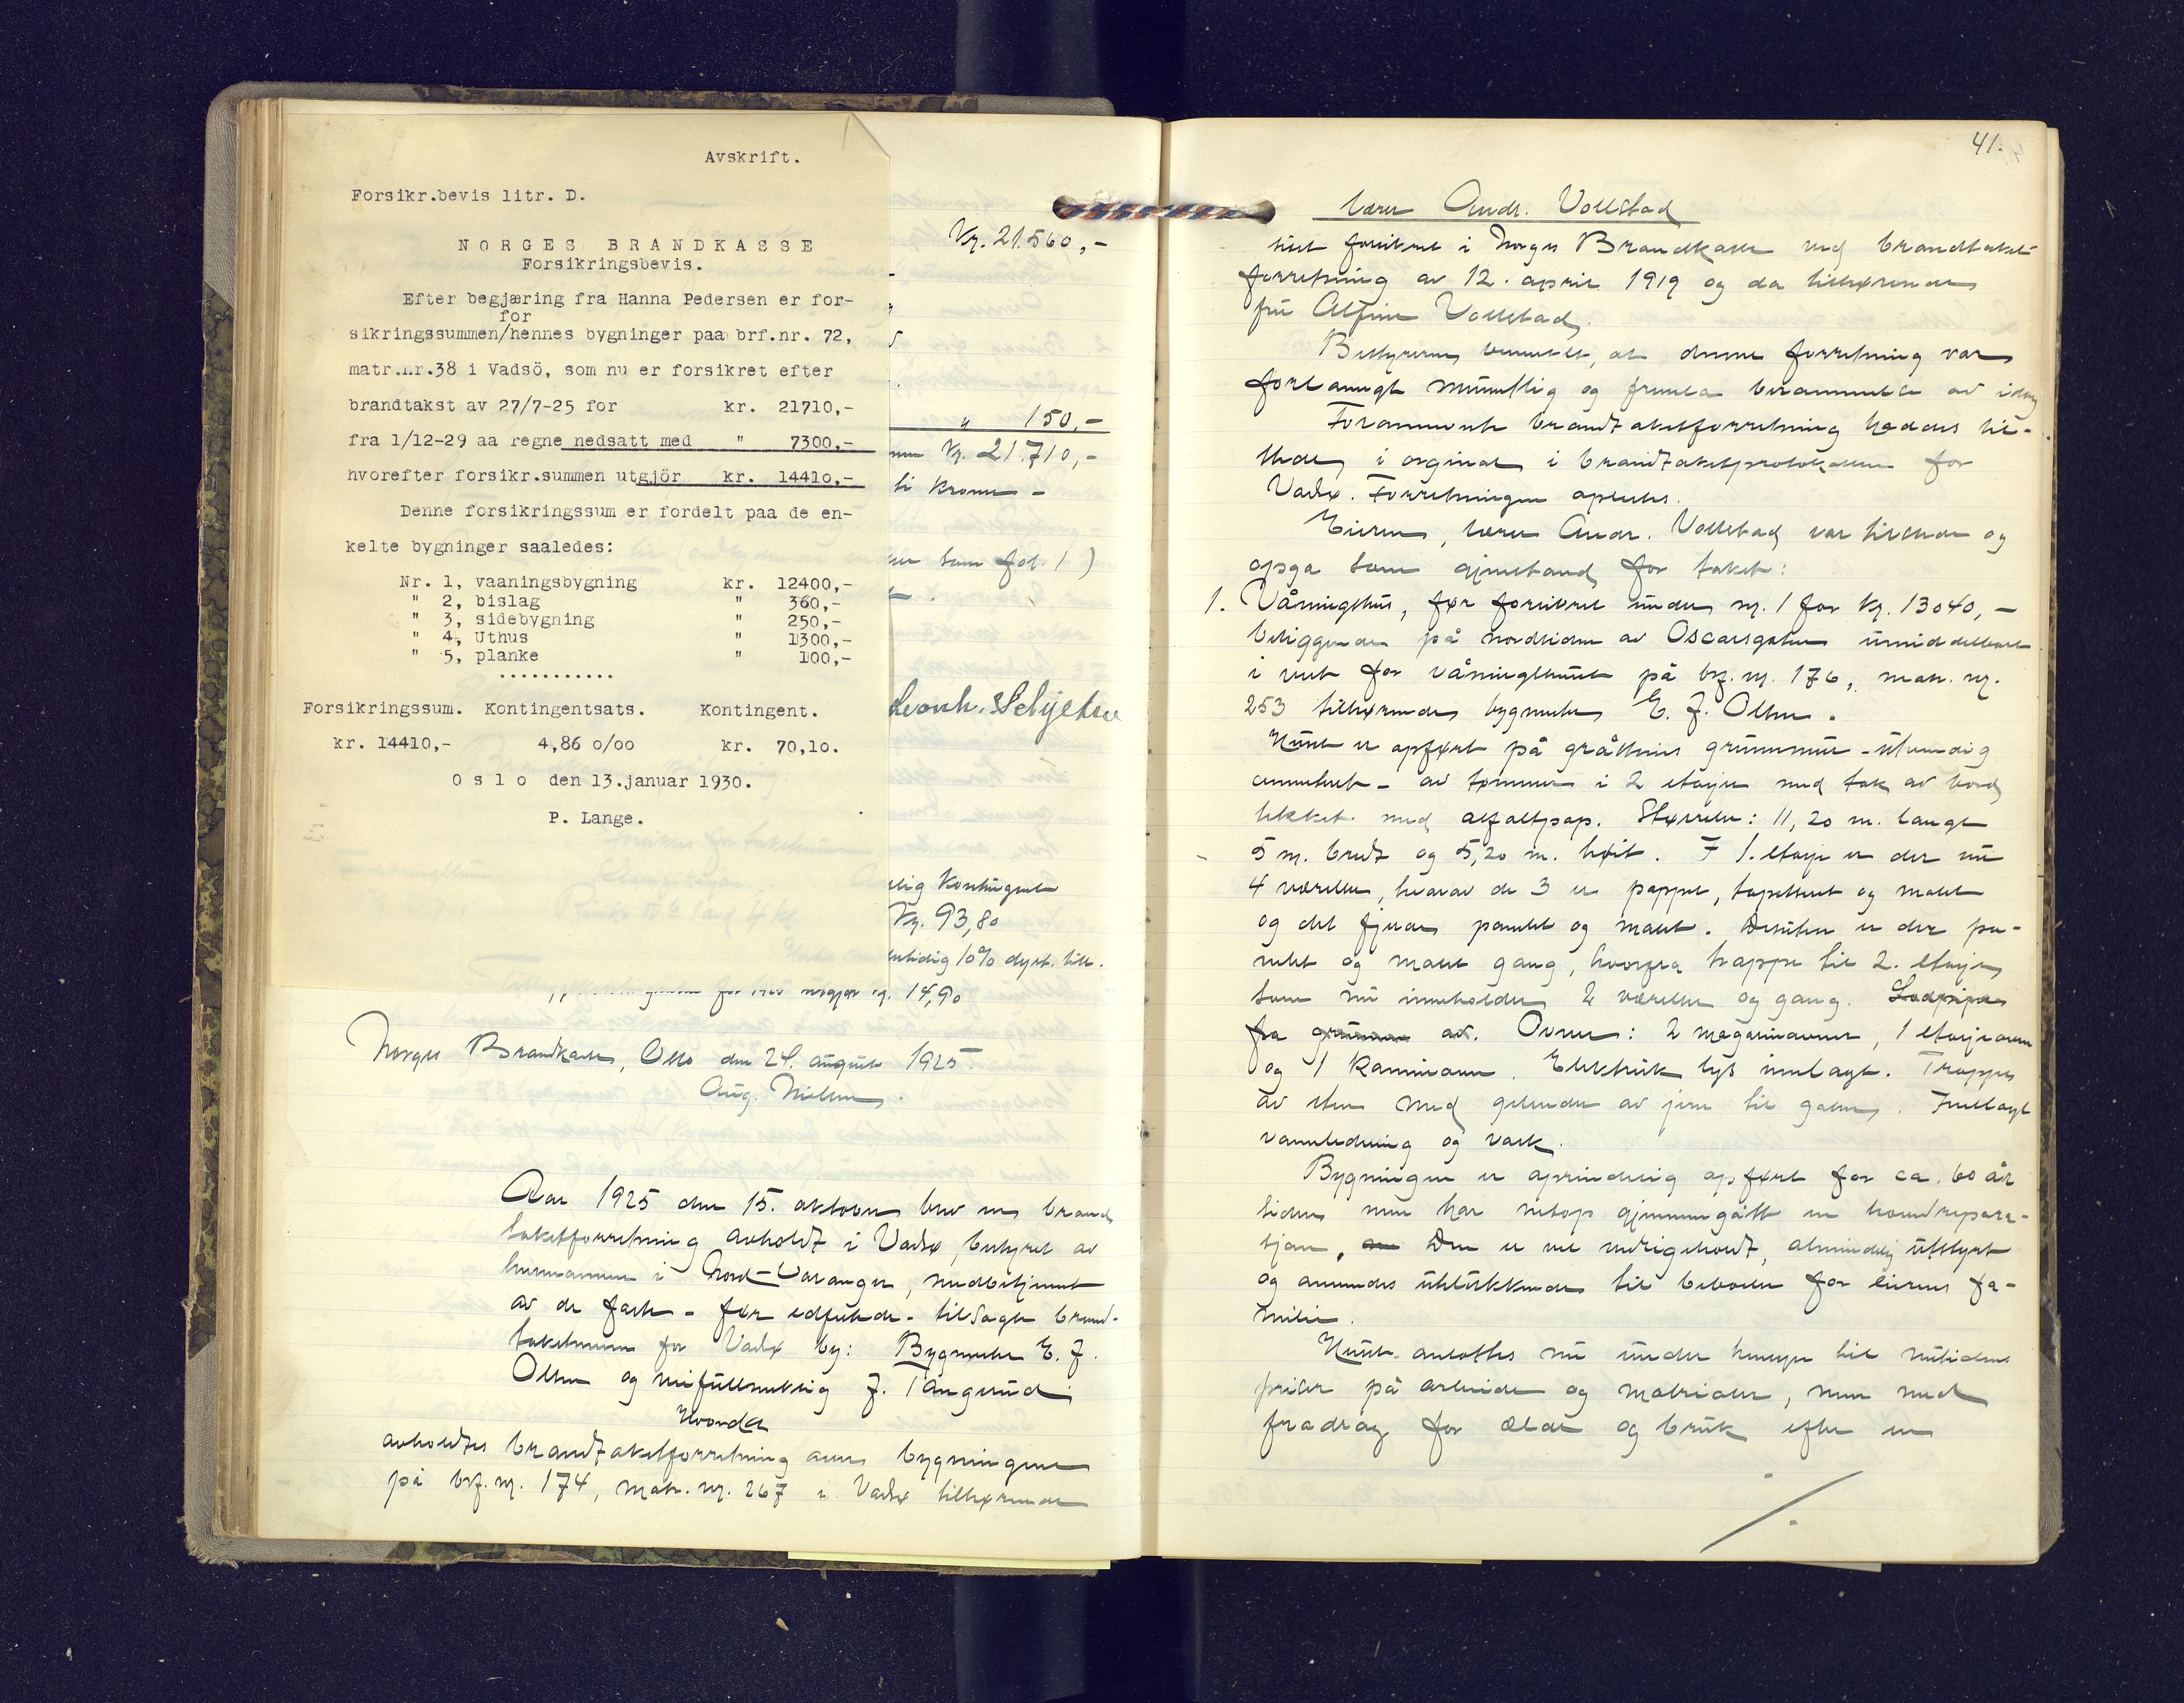 Avskrift.
Forsikr.bevis litr. D.
NORGES BRANDKASSE
Forsikringsbevis.
Efter begjæring fra Hanna Pedersen er for-
for
sikringssummen/hennes bygninger paa brf.nr. 72,
matr.nr.38 i Vadsö, som nu er forsikret efter
brandtakst av 27/7-25 for kr. 21710,-
fra 1/12-29 aa regne nedsatt med " 7300,-
hvorefter forsikr.summen utgjör kr. 14410,-
Denne forsikringssum er fordelt paa de en-
kelte bygninger saaledes:
Nr. 1, vaaningsbygning kr. 12400,-
" 2, bislag " 360,-
" 3, sidebygning " 250,-
" 4, Uthus " 1300,-
" 5, planke " 100,-
...........
Forsikringssum. Kontingentsats. Kontingent.
kr. 14410,- 4,86 o/oo kr. 70,10.
Oslo den 13.januar 1930.
P. Lange.
Kr. 21.560,-
" 150,-
Kr. 21.710,-
ti kroner -
som fol. 1)
Leonh. Schjelderup
Kontingent
Kr. 93,80
10% dyrt. till.
14,90
Norges Brandkasse, Oslo den 24. august 1925.
Aug. Nielsen.
Aar 1925 den 15. oktober blev en brand
takstforretning avholdt i Vadsø, bestyret av
lensmannen i Nord-Varanger, medbetjent
av de faste - før edfæstede - tilsagte brand-
takstmenn for Vadsø by: Bygmester E. J.
Olsen og J. Tangerud
Hvorda
avholdtes brandtakstforretning over bygningene
på brf. nr. 174, matr. nr. 267 i Vadsø tilhørende
41.
lærer Andr. Vollstad
sist forsikret i Norges Brandkasse ved brandtakst-
forretning av 12. april 1919 og da tilhørende
fru Alfine Vollstad.
Bestyreren bemerket, at denne forretning var
forlangt mundtlig og berammelse av idag
Forannevnte brandtakstforretning haddes til-
stede i orginal i brandtakstprotokollen for
Vadsø. Forretningen oplestes.
Eieren, lærer Andr. Vollstad var tilstede og
opga som gjenstand for takst:
1. Våningshus, før forsikret under nr. 1 for kr. 13040,-
beliggende på nordsiden av Oscarsgaten umiddelbart
i vest for våningshuset på brf. nr. 176, matr. nr.
253 tilhørende bygmester E. J. Olsen.
Huset er opført på gråstens grunnmur - utvendig
cementert - av tømmer i 2 etasjer med tak av bord
tekket med asfaltpap. Størrelse: 11,20 m. langt
5 m. bredt og 5,20 m. høit. I 1. etasje er der nu
4 værelser, hvorav de 3 er pappet, tapetsert og malt
og det fjerde panelt og malt. Desuten er der pa-
nelt og malt gang, hvorfra trappe til 2. etasje
som nu inneholder 2 værelser og gang. Lodpipe
fra grunnen av. Ovner: 2 magasinovner, 1 etasjeovn
og 1 kaminovn. Elektrisk lys innlagt. Trappe
av sten med gelender av jern til gaten. Innlagt
vannledning og vask.
Bygningen er oprindelig opført for ca. 60 år
siden men har netop gjennemgått en hovedrepara-
sjon. Den er vel vedligeholdt, almindelig utstyrt
og anvendes utelukkende til beboelse for eierens fa-
milie.
Huset ansattes nu under hensyn til nutidens
priser på arbeide og materialer, men med
fradrag for ælde og bruk efter en
./.